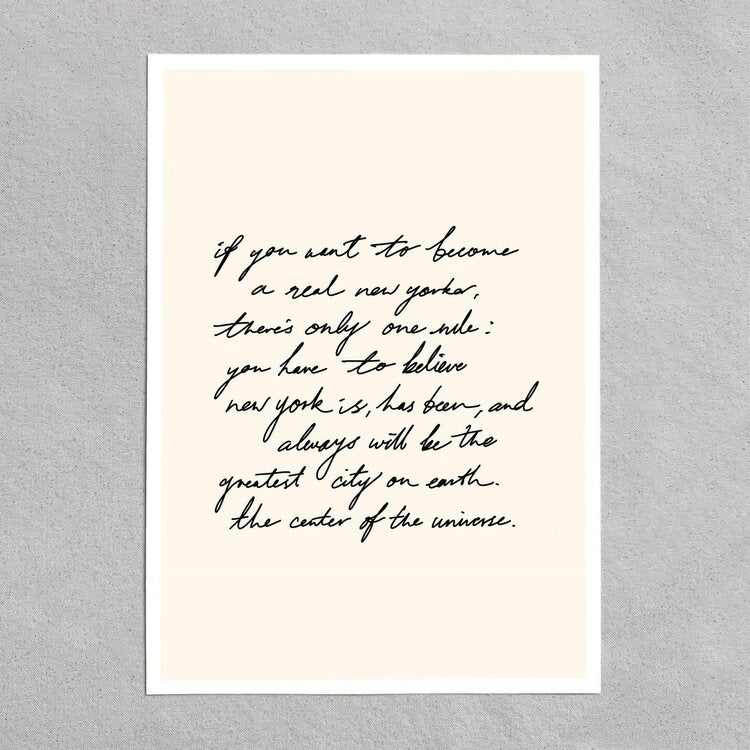 if you want to become
a real new yorker,
there's only one rule:
you have to believe
new york is, has been, and
always will be the
greatest city on earth.
the center of the universe.